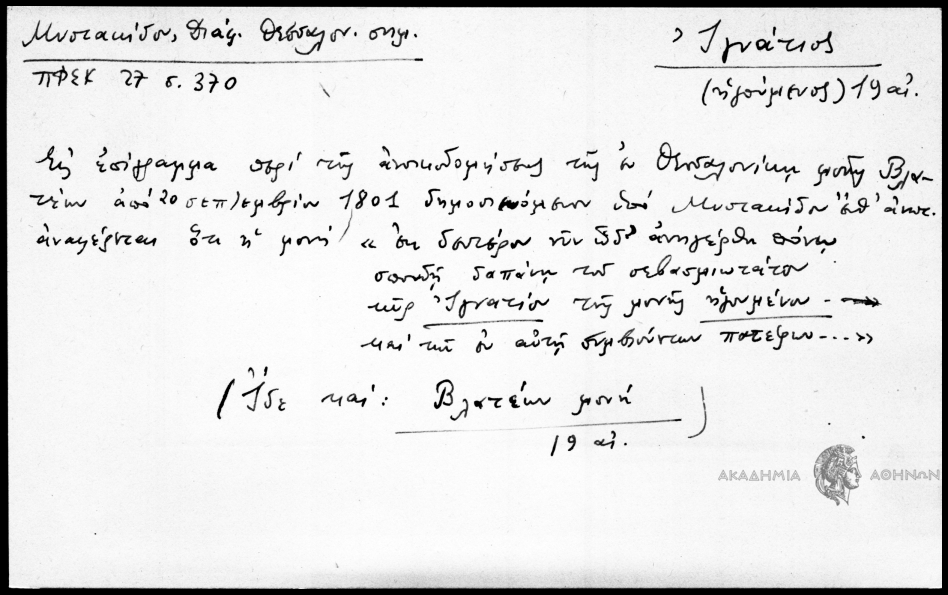 Μυστακίδου, Διάφ. Θεσσαλον. σημ.
ΠΦΣΚ 27 σ. 370
Ἰγνάτιος
(ἡγούμενος) 19 αἰ.
Εἰς ἐπίγραμμα περὶ τῆς ἀνοικοδομήσεως τῆς ἐν Θεσσαλονίκῃ μονῆς Βλα-
τέων ἀπὸ 20 σεπτεμβρίου 1801 δημοσιευόμενον ὑπὸ Μυστακίδου ἔνθ' ἀνωτ.
ἀναφέρεται ὅτι ἡ μονή « ἐκ δευτέρου νῦν ὧδ' ἀνηγέρθη πόνῳ
σπουδῇ δαπάνῃ τοῦ σεβασμιωτάτου
κὺρ Ἰγνατίου τῆς μονῆς ἡγουμένου . —
καὶ τῶν ἐν αὐτῇ συμβιούντων πατέρων....»
(Ἴδε καὶ: Βλατέων μονή)
19 αἰ.
ΑΚΑΔΗΜΙΑ ΑΘΗΝΩΝ